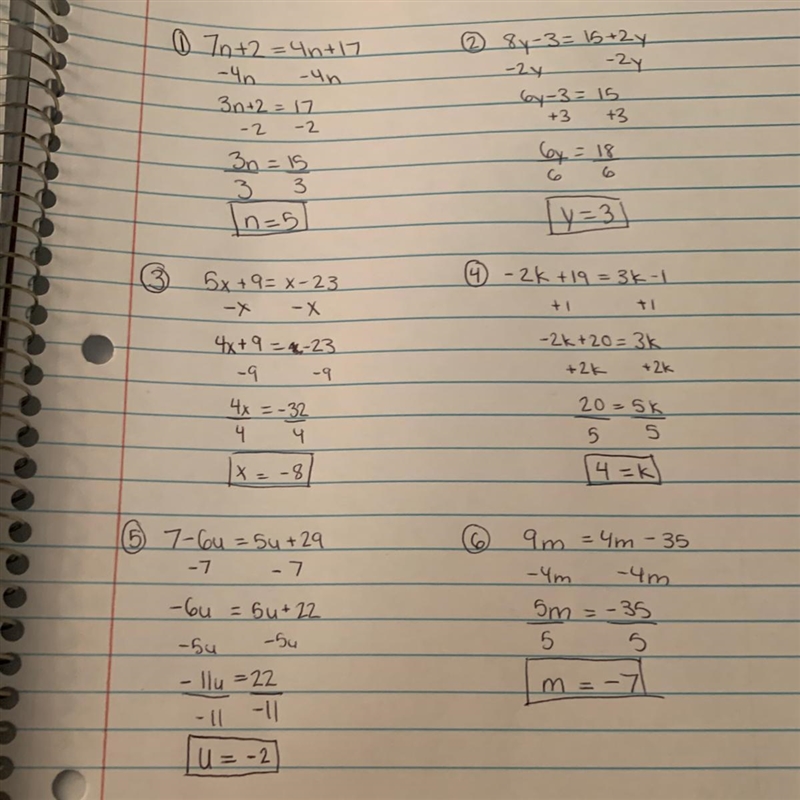 ① 7n+2 = 4n+17
-4n -4n
3n+2 = 17
-2 -2
3n = 15
3 3
n=5
② 8y-3 = 15+2y
-2y -2y
6y-3 = 15
+3 +3
6y = 18
6 6
y=3
③ 5x+9 = x-23
-x -x
4x+9 = -23
-9 -9
4x = -32
4 4
x = -8
④ -2k+19 = 3k-1
+1 +1
-2k+20 = 3k
+2k +2k
20 = 5k
5 5
4=k
⑤ 7-6u = 5u+29
-7 -7
-6u = 5u+22
-5u -5u
-11u = 22
-11 -11
u = -2
⑥ 9m = 4m - 35
-4m -4m
5m = -35
5 5
m = -7